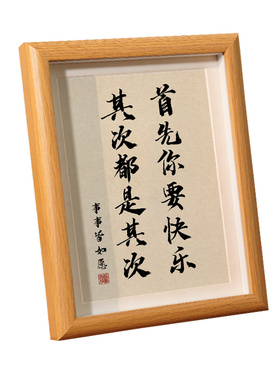 首先你要快乐
其次都是其次
事事皆如愿